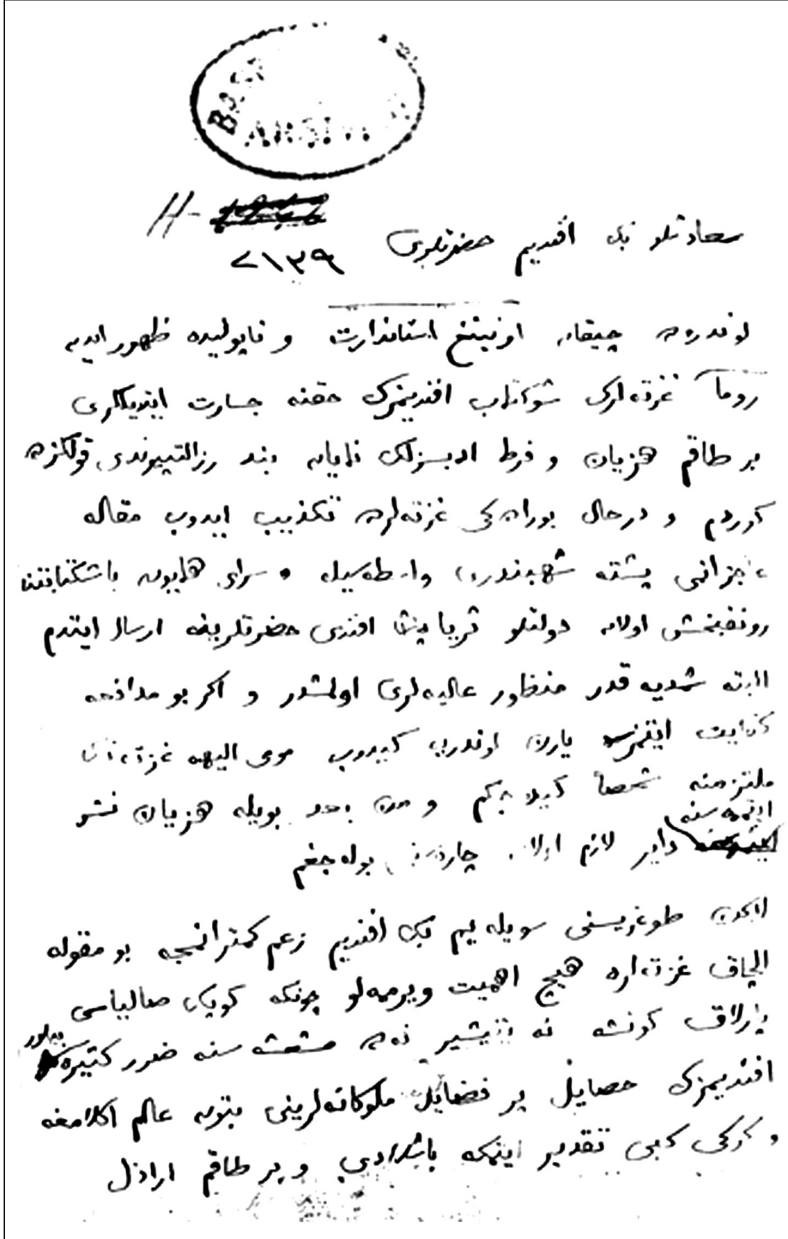 سعادتلو بك افنديم حضرتلرى
٧١٣٩
لوندرەدە چيقان اونينغ استاندارت و ناپوليده ظهور ايدن
روما غزتەلرى شوكتمآب افنديمزك حقنه جسارت ايتديكلرى
بر طاقم هزيان و فرط ادبسزلك بند قولكزدە
كوردم و درحال بورادەكى غزتەلردە تكذيب ايدوب مقاله
پشته شهبندرى واسطەسيله سراى همايون باشكتابتنە
رونقبخش اولان دولتلو ثريا پاشا افندى حضرتلرينه ارسال ايتدم
البته شمديه قدر منظور عاليەلرى اولمشدر و اكر بو مدافعه
كفايت ايتمزسه يارن لوندرەيه كيدوب مومى اليهە غزتە
ملتزمنه شخصاً كيدەجكم و بعد بويله هزيان نشر
ايتمەسنه
داير لازم اولان چارەسنى بولەجغم
لكن طوغريسنى سويلەيم بك افنديم زعم كمترانمجه بو مقوله
آلچاق غزتەلرە هيچ اهميت ويرمەلو چونكه
پارلاق كونشه نه يتيشير نەدە ضرر
افنديمزك خصايل پر فضايل ملوكانەلرينى بتون عالم اكلامغه
و كركى كبى تقدير ايتمكه باشلادى و بر طاقم اراذل